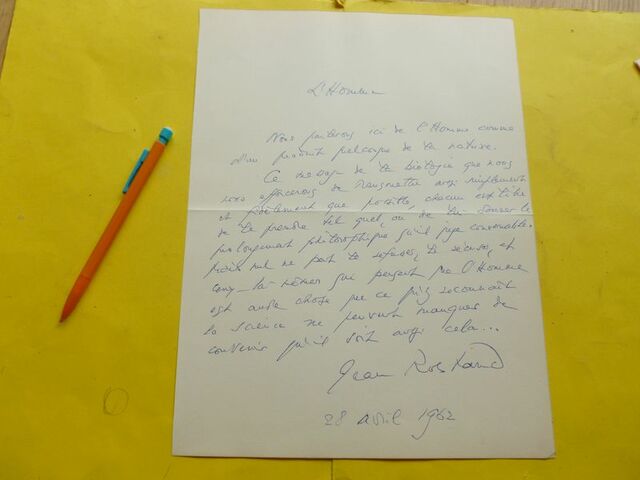 L'Homme
Nous parlerons ici de l'Homme comme
d'un produit quelconque de la nature.
Ce message de la biologie que nous
nous efforcerons de transmettre aussi simplement
et fidèlement que possible, chacun est libre
de le prendre tel quel, ou de lui donner le
prolongement philosophique qu'il juge convenable.
mais nul ne peut le refuser, le récuser, et
ceux-là mêmes qui pensent que l'Homme
est autre chose que ce qu'y reconnaît
la science ne peuvent manquer de
convenir qu'il soit aussi cela...
Jean Rostand
28 avril 1962